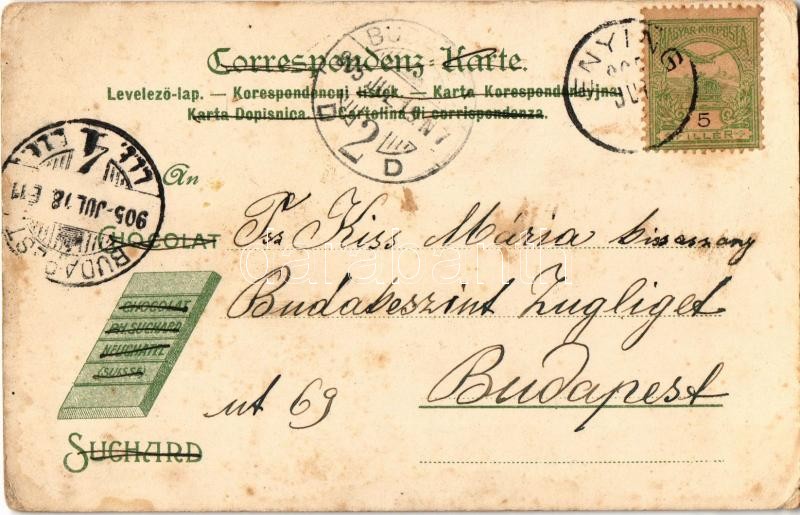 Correspondenz-Karte.
Levelező-lap. — Korespondencni listek. — Karta Korespondencyjna
Karta Dopisnica. — Cartolina di corrispondenza.
MAGYAR KIR. POSTA
5
FILLÉR
ENYING
905
JUL
BU
905 JUL 18 N 7
2
D D
BUDAPEST
905-JUL. 18. E 11
An
CHOCOLAT
CHOCOLAT
PH. SUCHARD
NEUCHATEL
(SUISSE)
SUCHARD
Kiss Mária kisasszony
Budakeszi út Zugliget
Budapest
út 69
darabanth